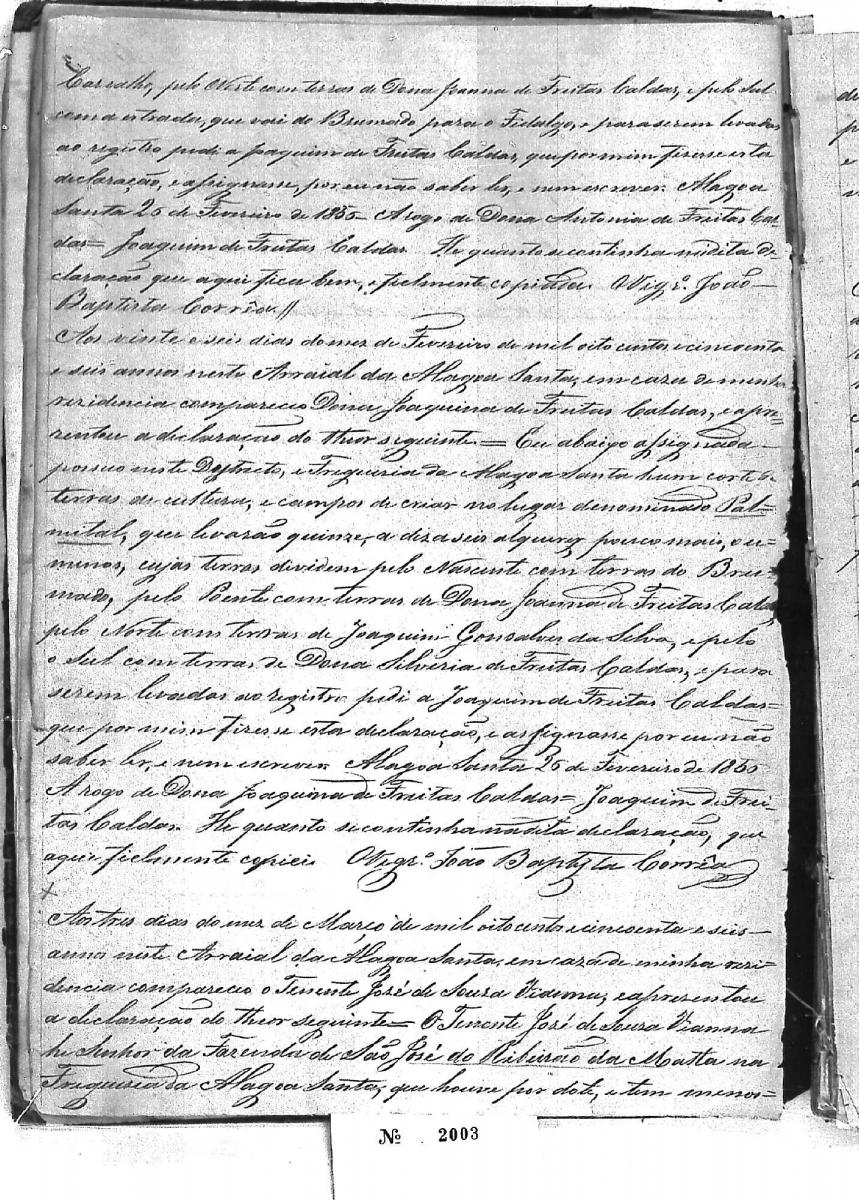 Carvalho, pelo Norte com terras de Dona Joanna de Freitas Caldas, e pelo Sul
com a estrada, que vai do Brumado para o Fidalgo, e para serem levadas
ao registro pedi a Joaquim de Freitas Caldas, que por mim fizesse esta
declaração, e assignasse, por eu não saber ler, e nem escrever. Alagoa
Santa 26 de Fevereiro de 1856 A rogo de Dona Antonia de Freitas Cal-
das= Joaquim de Freitas Caldas. He quanto se continha na dita de-
claração que aqui fica bem, e fielmente copiada. O Vigr.º João
Baptista Corrêa //
Aos vinte e seis dias do mez de Fevereiro de mil oito centos e cincoenta
e seis annos neste Arraial da Alagoa Santa, em caza de minha
rezidencia compareceo Dona Joaquina de Freitas Caldas, e apre-
zentou a declaração do theor seguinte= Eu abaixo assignada
possuo neste Destricto, e Freguezia da Alagoa Santa hum corte de
terras de cultura, e campos de criar no lugar denominado Pal-
mital, que levarão quinze, a dezaseis alqueres pouco mais, ou
menos, cujas terras dividem pelo Nascente com terras do Bru-
mado, pelo Poente com terras de Dona Joanna de Freitas Caldas,
pelo Norte com terras de Joaquim Gonsalves da Silva, e pelo
o Sul com terras de Dona Silveria de Freitas Caldas, e para
serem levadas ao registro pedi a Joaquim de Freitas Caldas=
que por mim fizesse esta declaração, e assignasse por eu não
saber ler, e nem escrever. Alagoa Santa 26 de Fevereiro de 1856
A rogo de Dona Joaquina de Freitas Caldas= Joaquim de Frei-
tas Caldas. He quanto se continha na dita declaração, que
aqui fielmente copiei. O Vigr.º João Baptista Corrêa
Aos tres dias do mez de Março de mil oito centos e cincoenta e seis
annos neste Arraial da Alagoa Santa, em caza de minha rezi-
dencia compareceo o Tenente José de Souza Vianna, e aprezentou
a declaração do theor seguinte= O Tenente José de Souza Vianna
he Senhor da Fazenda de São José do Ribeirão da Matta na
Freguezia da Alagoa Santa, que houve por dote, e tem menos=
Nº 2003